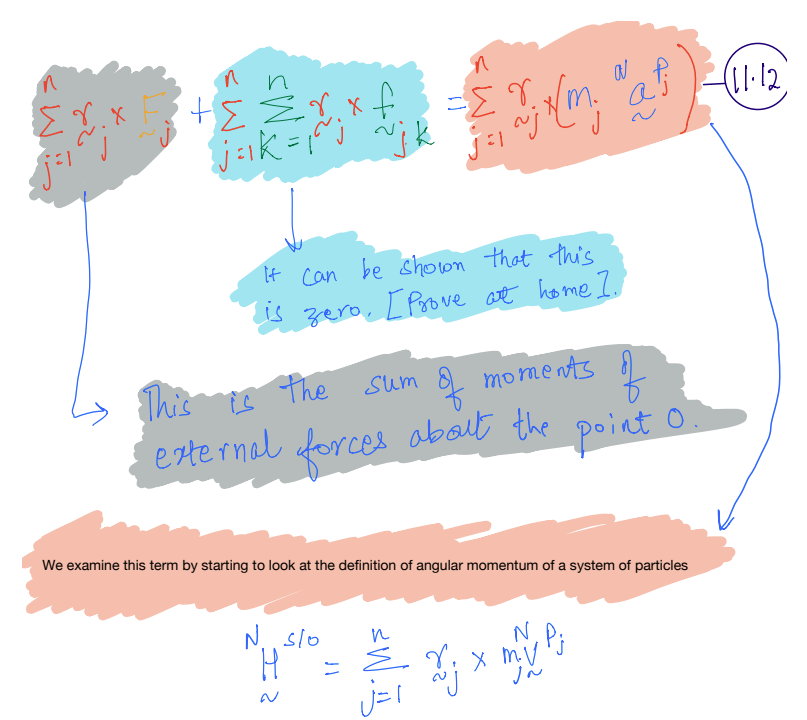 n Σ j=1 r̰ j × F̰ j + n Σ j=1 n Σ k=1 r̰ j × f̰ jk = n Σ j=1 r̰ j × (m j N a̰ Pj) 11.12
It can be shown that this
is zero. [Prove at home].
This is the sum of moments of
external forces about the point O.
We examine this term by starting to look at the definition of angular momentum of a system of particles
N H̰ S/O = n Σ j=1 r̰ j × m j N V̰ Pj